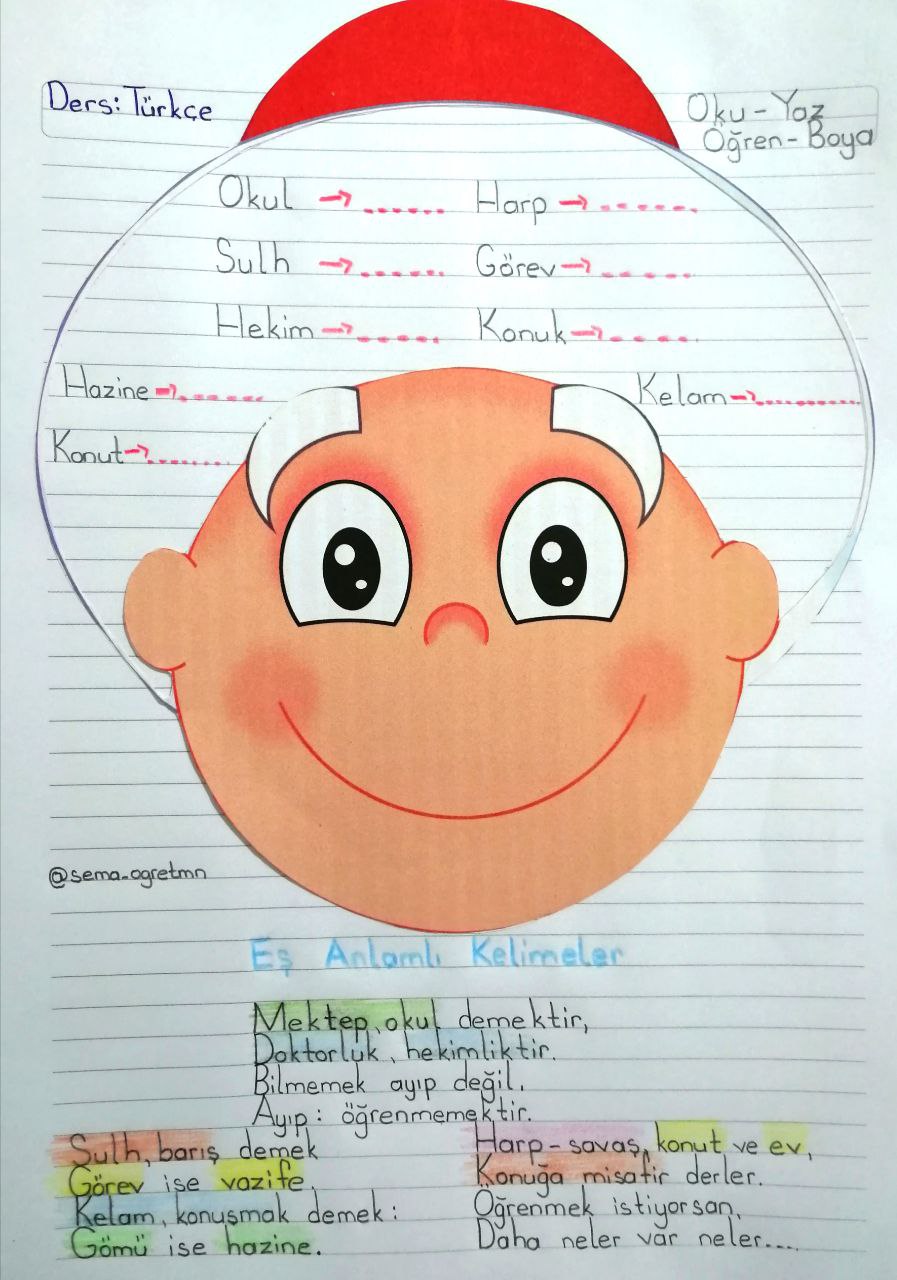 Ders: Türkçe
Oku - Yaz
Öğren - Boya
Okul → ...... Harp → .......
Sulh → ...... Görev → ......
Hekim → ...... Konuk → ......
Hazine → ....... Kelam → ..........
Konut → .......
@sema_ogretmn
Eş Anlamlı Kelimeler
Mektep, okul demektir,
Doktorluk, hekimliktir.
Bilmemek ayıp değil.
Ayıp: öğrenmemektir.
Sulh, barış demek
Görev ise vazife.
Kelam, konuşmak demek:
Gömü ise hazine.
Harp - savaş, konut ve ev,
Konuğa misafir derler.
Öğrenmek istiyorsan,
Daha neler var neler....